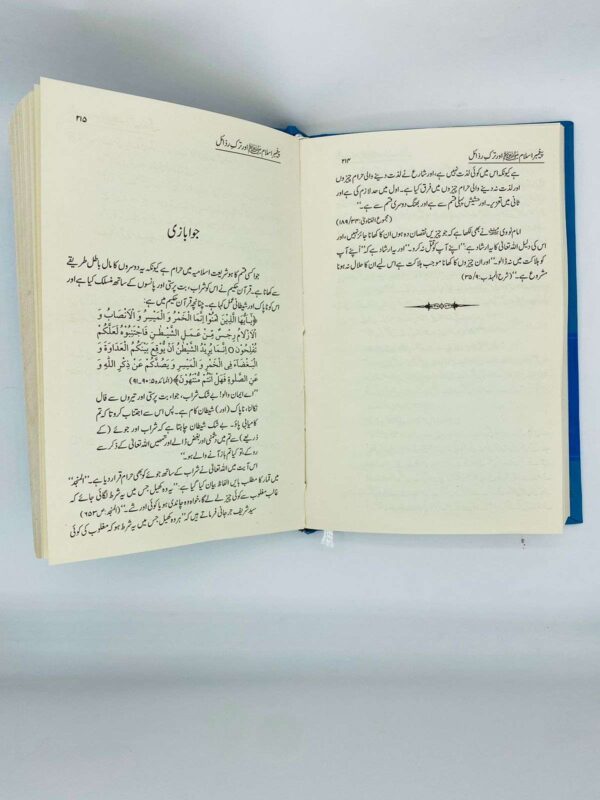 ۲۱۴
پیغمبر اسلام ﷺ اور ترکِ رذائل
ہے کیونکہ اس میں کوئی لذت نہیں ہے، اور شارع نے لذت دینے والی حرام چیزوں
اور لذت نہ دینے والی حرام چیزوں میں فرق کیا ہے۔ اول میں حد لازم کی ہے اور
ثانی میں تعزیر۔ اور حشیش پہلی قسم سے ہے اور بھنگ دوسری قسم سے ہے۔‘‘
امام نووی نے بھی لکھا ہے کہ جو چیزیں نقصان دہ ہوں ان کا کھانا جائز نہیں، اور
اس کی دلیل اللہ تعالیٰ کا یہ ارشاد ہے: ’’اپنے آپ کو قتل نہ کرو۔‘‘ اور یہ ارشاد ہے کہ ’’اپنے آپ
کو ہلاکت میں نہ ڈالو۔‘‘ اور ان چیزوں کا کھانا موجب ہلاکت ہے اس لیے ان کا حلال نہ ہونا
مشروع ہے۔‘‘ (شرح المہذب: ۹/۳۵)
۲۱۵
پیغمبر اسلام ﷺ اور ترکِ رذائل
جوا بازی
جوا کسی قسم کا ہو شریعت اسلامیہ میں حرام ہے کیونکہ یہ دوسروں کا مال باطل طریقے
سے کھانا ہے۔ قرآن حکیم نے اس کو شراب، بت پرستی اور پانسوں کے ساتھ منسلک کیا ہے اور
اس کو ناپاک اور شیطانی عمل کہا ہے۔ چنانچہ قرآن حکیم میں ہے:
﴿یٰۤاَیُّهَا الَّذِیْنَ اٰمَنُوْۤا اِنَّمَا الْخَمْرُ وَ الْمَیْسِرُ وَ الْاَنْصَابُ وَ
الْاَزْلَامُ رِجْسٌ مِّنْ عَمَلِ الشَّیْطٰنِ فَاجْتَنِبُوْهُ لَعَلَّكُمْ
تُفْلِحُوْنَ۝ اِنَّمَا یُرِیْدُ الشَّیْطٰنُ اَنْ یُّوْقِعَ بَیْنَكُمُ الْعَدَاوَةَ وَ
الْبَغْضَآءَ فِی الْخَمْرِ وَ الْمَیْسِرِ وَ یَصُدَّكُمْ عَنْ ذِكْرِ اللّٰهِ وَ
عَنِ الصَّلٰوةِ فَهَلْ اَنْتُمْ مُّنْتَهُوْنَ﴾ (المائدہ ۵: ۹۰۔۹۱)
’’اے ایمان والو! بے شک شراب، جوا، بت پرستی اور تیروں سے فال
نکالنا، ناپاک (اور) شیطان کا کام ہے۔ پس اس سے اجتناب کرو تا کہ تم
کامیابی پاؤ۔ بے شک شیطان چاہتا ہے کہ شراب اور جوئے (کے
ذریعے) سے تم میں دشمنی اور بغض ڈالے اور تمھیں اللہ تعالیٰ کے ذکر سے
روکے، تو کیا تم باز آنے والے ہو۔‘‘
اس آیت میں اللہ تعالیٰ نے شراب کے ساتھ جوئے کو بھی حرام قرار دیا ہے۔ ’’المنجد‘‘
میں قمار کا مطلب بایں الفاظ بیان کیا گیا ہے ’’یہ وہ کھیل جس میں یہ شرط لگائی جائے کہ
غالب مغلوب سے کوئی چیز لے لے گا، خواہ وہ چاندی ہو یا کوئی اور شے۔‘‘ (المنجد: ص ۶۵۳)
سید شریف جرجانی فرماتے ہیں کہ ’’ہر وہ کھیل جس میں یہ شرط ہو کہ مغلوب کی کوئی